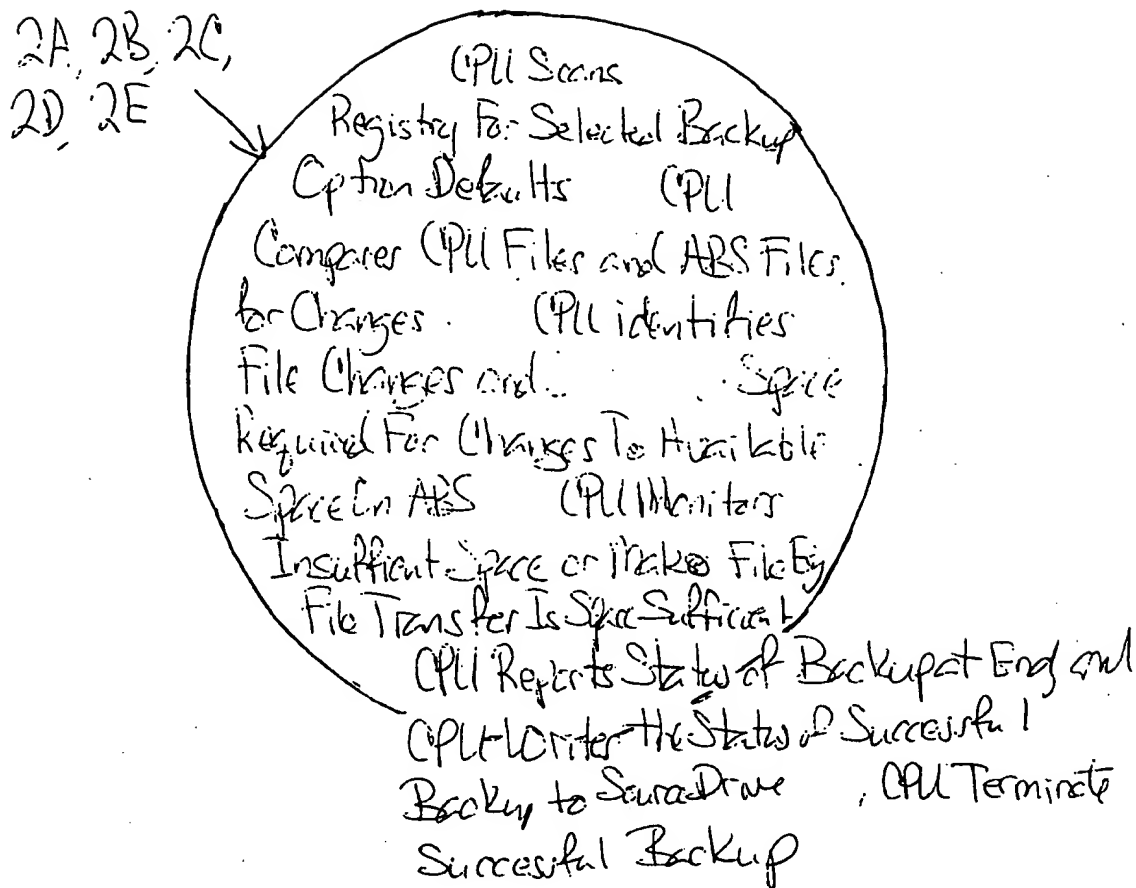 2A, 2B, 2C,
2D, 2E
CPU Scans
Registry For Selected Backup
Option Defaults CPU
Compares CPU Files and ABS Files
for Changes. CPU identifies
File Changes and.. . Space
Required For Changes To Available
Space On ABS CPU Monitors
Insufficient Space or Makes File By
File Transfer Is Space Sufficient
CPU Reports Status of Backup at End and
CPU Writes the Status of Successful
Backup to Source Drive , CPU Terminate
Successful Backup